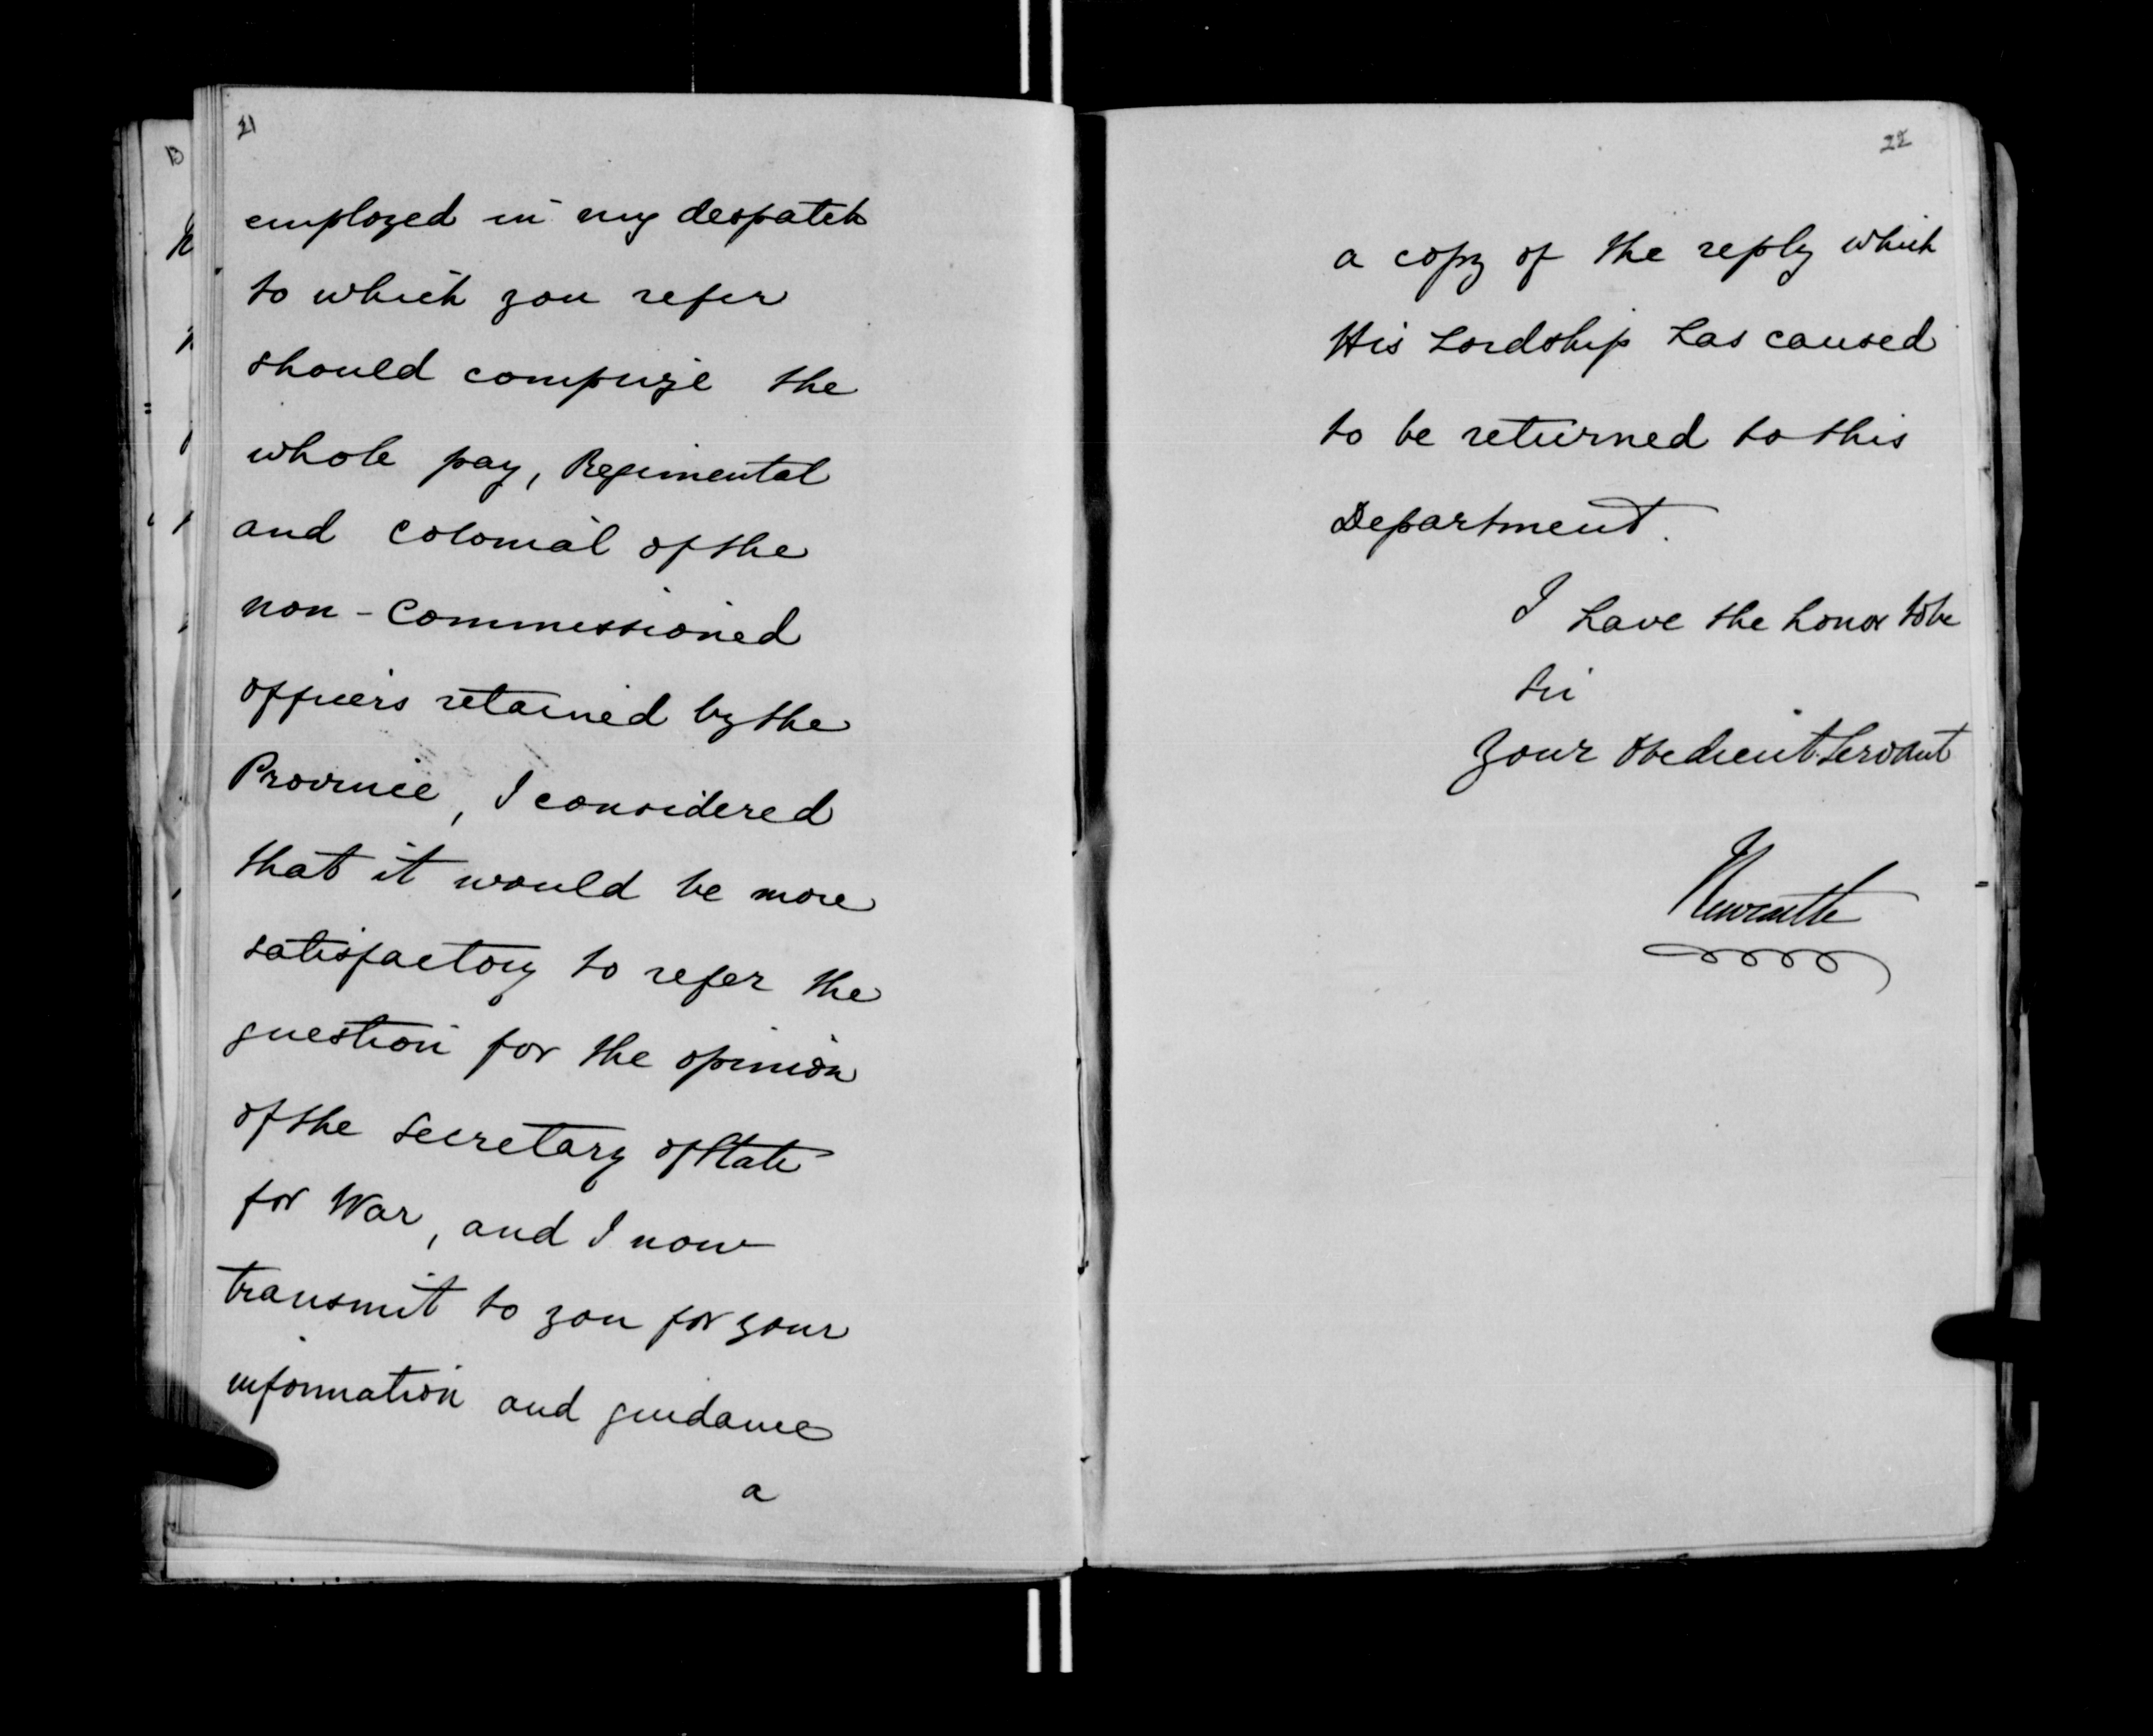 21
employed in my despatch
to which you refer
should comprize the
whole pay, Regimental
and Colonial of the
non-Commissioned
officers retained by the
Province, I considered
that it would be more
satisfactory to refer the
question for the opinion
of the Secretary of State
for War, and I now
transmit to you for your
information and guidance
a
22
a copy of the reply which
His Lordship has caused
to be returned to this
Department.
I have the honor to be
Sir
Your Obedient Servant
Newcastle